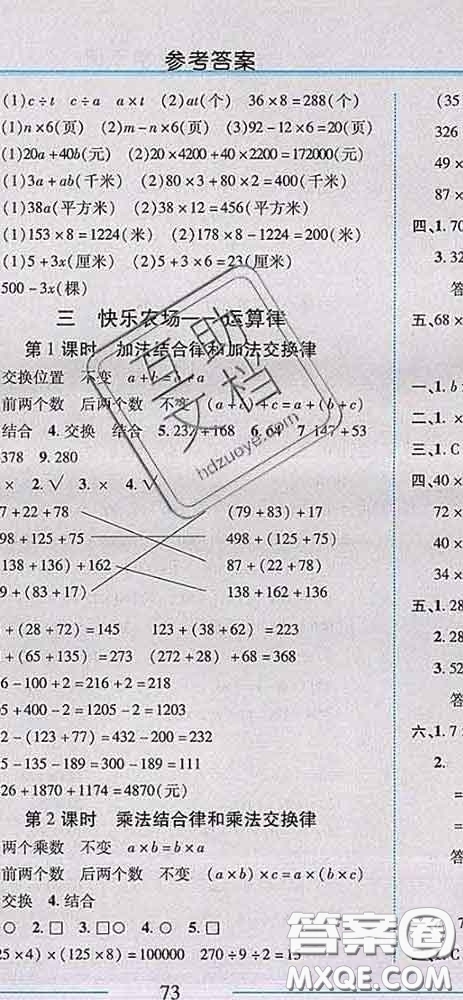 参考答案
(1)c÷t c÷a a×t (2)at(个) 36×8=288(个)
(1)n×6(页) (2)m-n×6(页) (3)92-12×6=20(页)
(1)20a+40b(元) (2)20×4200+40×2200=172000(元)
(1)3a+ab(千米) (2)80×3+80×2=400(千米)
(1)38a(平方米) (2)38×12=456(平方米)
(1)153×8=1224(米) (2)178×8-1224=200(米)
(1)5+3x(厘米) (2)5+3×6=23(厘米)
500-3x(棵)
三 快乐农场——运算律
第1课时 加法结合律和加法交换律
交换位置 不变 a+b=b+a
前两个数 后两个数 不变 (a+b)+c=a+(b+c)
结合 4.交换 结合 5.232+168 6.07 7.147+53
378 9.280
× 2.√ 3.× 4.√
7+22+78 (79+83)+17
98+125+75 498+(125+75)
138+136)+162 87+(22+78)
9+(83+17) 138+162+136
+(28+72)=145 123+(38+62)=223
+(65+135)=273 (228+72)+68=368
6-100+2=216+2=218
05+400-2=1205-2=1203
2-(77+23)=242-100=142
5-135-189=300-189=111
26+1870+1174=4870(千克)
第2课时 乘法结合律和乘法交换律
两个乘数 不变 a×b=b×a
前两个数 后两个数 不变 (a×b)×c=a×(b×c)
交换 4.结合
○ 2.□ 3.□○ 4.○ 5.□
25×4)×(125×8)=100000 270÷9÷2=15
73
(35
326
49×
87×
四、1.70
3.32
答
五、68×
一、1.
二、1.
三、1.C
四、40×
72×
40×
34×
五、1.
2.28
3.52
答
六、1.7
2.
=
=
答
互助文档
hdzuoye.com
答案圈
MXQE.COM